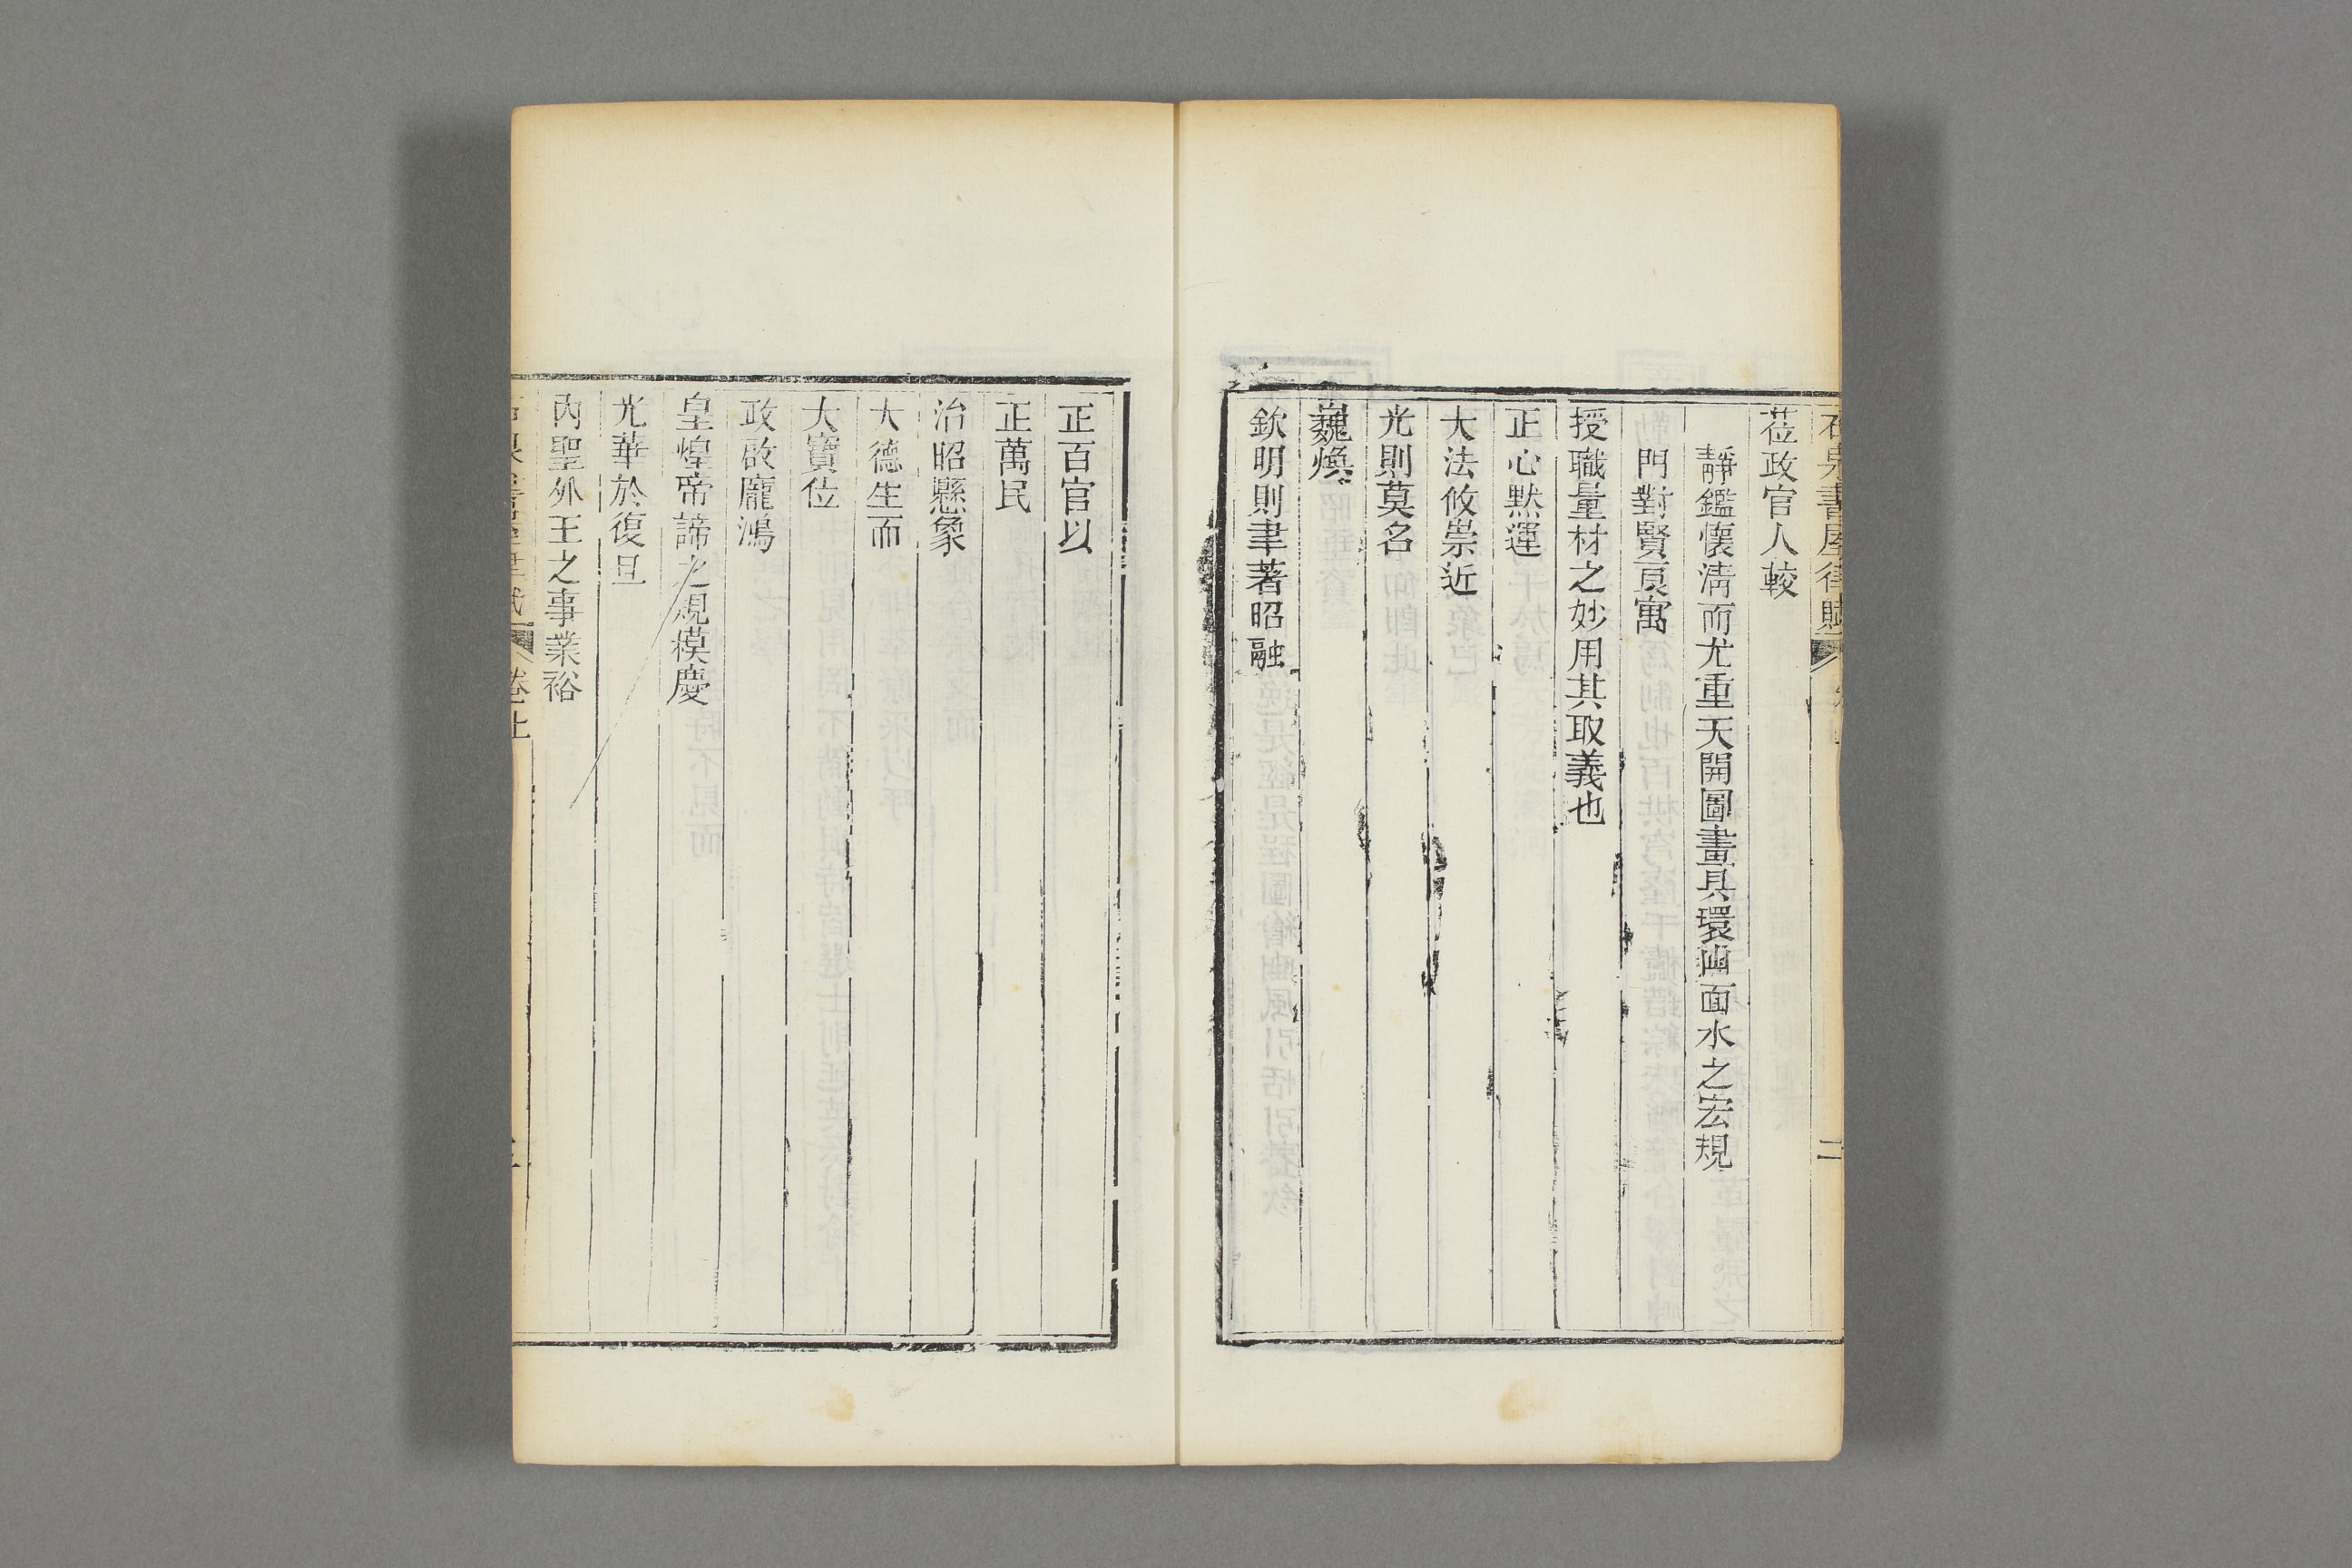 石泉書屋律賦
二
莅政官人較
靜鑑懷淸而尤重天開圖畫具環幽面水之宏規
門對賢頁寓
授職量材之妙用其取義也
正心默運
大法攸崇近
光則莫名
巍煥
欽明則聿著昭融
正百官以
正萬民
治昭懸象
大德生而
大寶位
政啟龐鴻
皇煌帝諦之規模慶
光華於復旦
內聖外王之事業裕
卷上